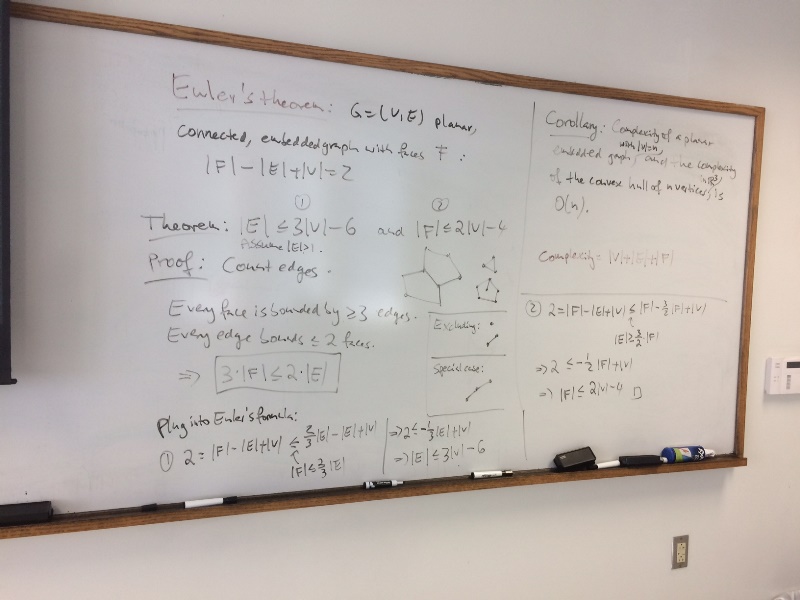 Euler's theorem: G=(V,E) planar,
connected, embedded graph with faces F:
|F|-|E|+|V|=2
① ②
Theorem: |E|≤3|V|-6 and |F|≤2|V|-4
Assume |E|>1.
Proof: Count edges.
Every face is bounded by ≥3 edges.
Every edge bounds ≤2 faces.
=> 3·|F|≤2·|E|
Excluding:
Special case:
Plug into Euler's formula:
① 2=|F|-|E|+|V| ≤ 2/3|E|-|E|+|V|
|F|≤2/3|E|
=> 2≤-1/3|E|+|V|
=> |E|≤3|V|-6
Corollary: Complexity of a planar
with |V|=n,
embedded graph, and the complexity
in R³,
of the convex hull of n vertices, is
O(n).
Complexity: |V|+|E|+|F|
② 2=|F|-|E|+|V| ≤ |F|-3/2|F|+|V|
|E|≥3/2|F|
=> 2≤-1/2|F|+|V|
=> |F|≤2|V|-4 □